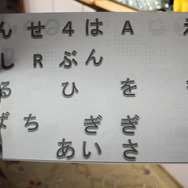 ん せ 4 は A
し R ぶ ん
る ひ を
ば ち ぎ ぎ
あ い さ